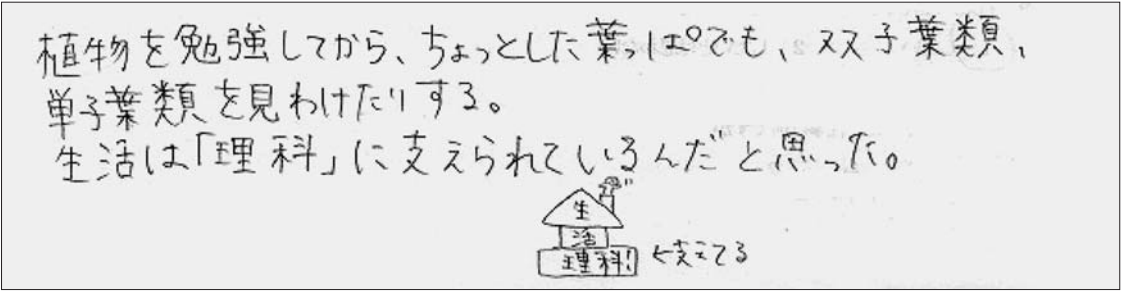 植物を勉強してから、ちょっとした葉っぱでも、双子葉類、
単子葉類を見わけたりする。
生活は「理科」に支えられているんだと思った。
生
活
理科！ ←支えてる